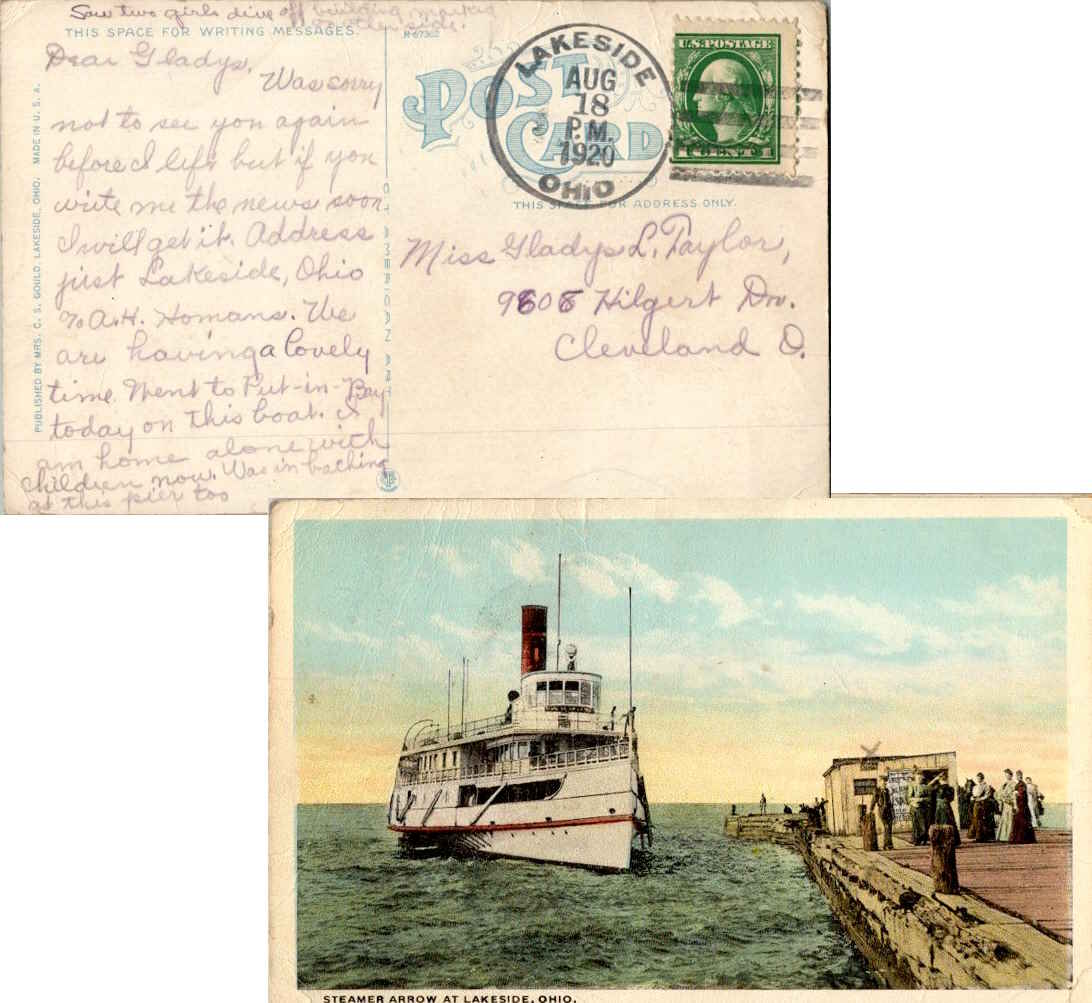 Saw two girls dive off building marked
on other side.
THIS SPACE FOR WRITING MESSAGES.
R-67362
Dear Gladys,
Was sorry
not to see you again
before I left but if you
write me the news soon
I will get it. Address
just Lakeside, Ohio
℅ A.H. Homans. We
are having a lovely
time. Went to Put-in-Bay
today on this boat. I
am home alone with
children now. Was in bathing
at this pier too
PUBLISHED BY MRS. C. S. GOULD, LAKESIDE, OHIO. MADE IN U. S. A.
POST CARD
LAKESIDE,
AUG
18
P.M.
1920
OHIO
U.S. POSTAGE
1 CENT 1
THIS SPACE FOR ADDRESS ONLY.
Miss Gladys L. Taylor,
9808 Hilgert Dr.
Cleveland O.
STEAMER ARROW AT LAKESIDE, OHIO.